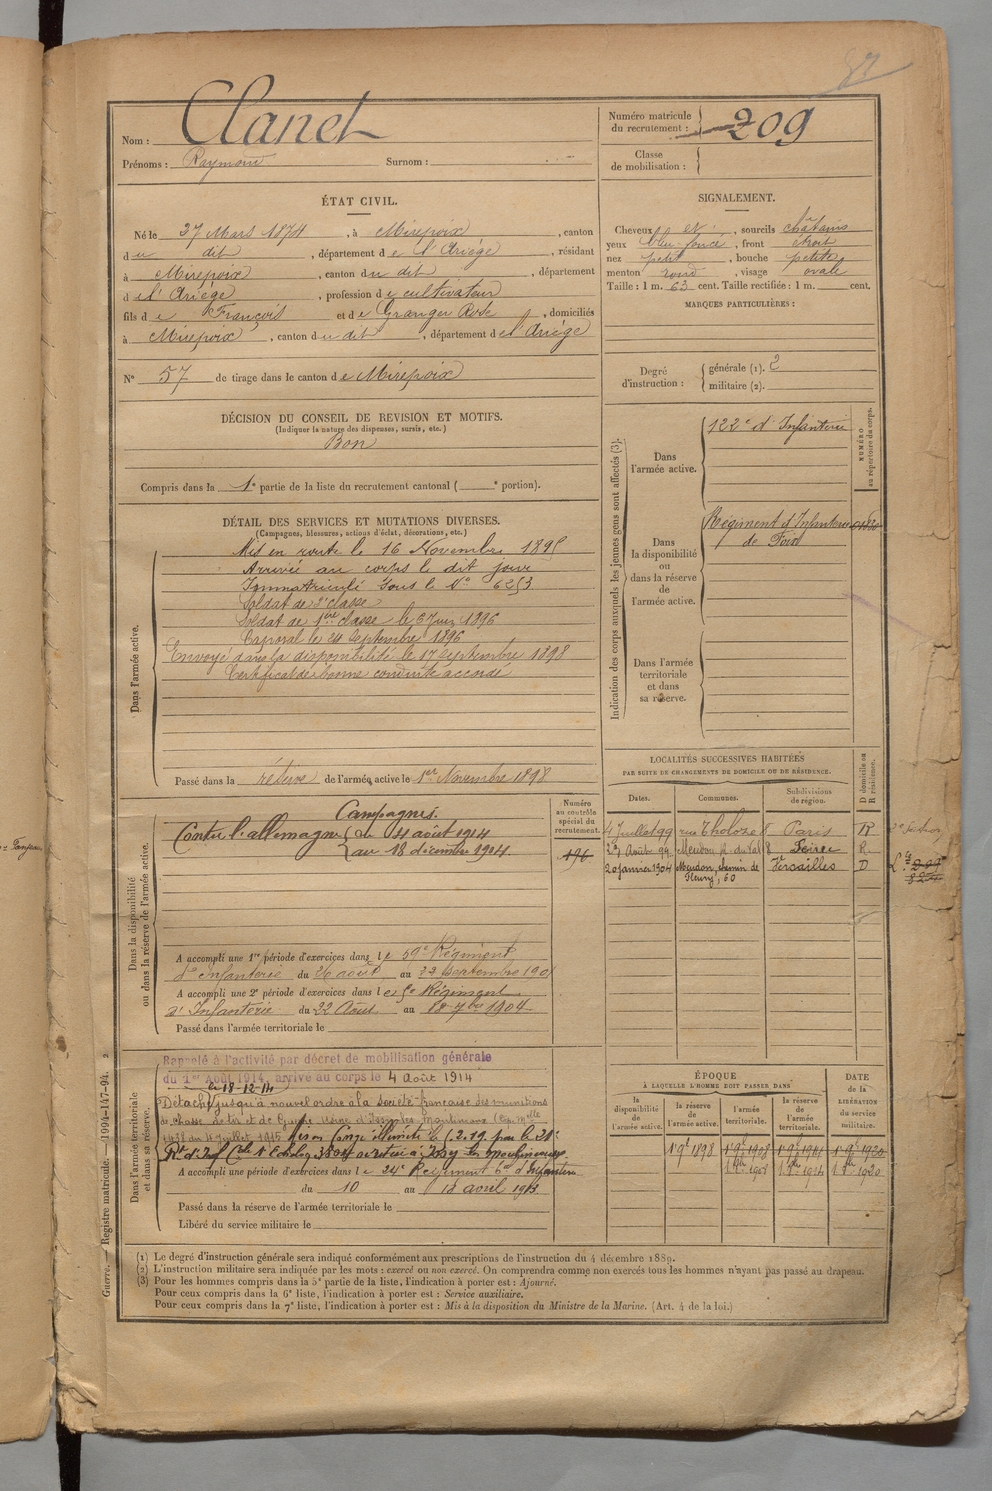 87
Clanet
Nom :
Prénoms : Raymond Surnom :
Numéro matricule du recrutement : 209
Classe de mobilisation :
ÉTAT CIVIL.
Né le 27 Mars 1874, à Mirepoix, canton
du dit, département de l'Ariège, résidant
à Mirepoix, canton du dit, département
de l'Ariège, profession de cultivateur
fils de François et de Granger Rose, domiciliés
à Mirepoix, canton du dit, département de l'Ariège
N° 57 de tirage dans le canton de Mirepoix
SIGNALEMENT.
Cheveux et, sourcils châtains
yeux bleu foncé, front étroit
nez petit, bouche petite
menton rond, visage ovale
Taille : 1 m. 63 cent. Taille rectifiée : 1 m. cent.
MARQUES PARTICULIÈRES :
Degré d'instruction : générale (1). 2
militaire (2).
DÉCISION DU CONSEIL DE REVISION ET MOTIFS.
(Indiquer la nature des dispenses, sursis, etc.)
Bon
Compris dans la 1e partie de la liste du recrutement cantonal ( e portion).
DÉTAIL DES SERVICES ET MUTATIONS DIVERSES.
(Campagnes, blessures, actions d'éclat, décorations, etc.)
Dans l'armée active.
Mis en route le 16 Novembre 1895
Arrivé au corps le dit jour
Immatriculé sous le N° 6253
Soldat de 2e classe
Soldat de 1ère classe le 6 Juin 1896
Caporal le 24 Septembre 1896
Envoyé dans la disponibilité le 17 septembre 1898
Certificat de bonne conduite accordé
Passé dans la réserve de l'armée active le 1er Novembre 1898
Indication des corps auxquels les jeunes gens sont affectés (3).
NUMÉRO au répertoire du corps.
Dans l'armée active.
122e d'Infanterie
Dans la disponibilité ou dans la réserve de l'armée active.
Régiment d'Infanterie
de Foix
Dans l'armée territoriale et dans sa réserve.
Dans la disponibilité ou dans la réserve de l'armée active.
Numéro au contrôle spécial du recrutement.
196
Campagnes.
Contre l'allemagne du 4 août 1914
au 18 décembre 1914.
A accompli une 1re période d'exercices dans le 59e Régiment
d'Infanterie du 26 août au 22 Septembre 190
A accompli une 2e période d'exercices dans le 5e Régiment
d'Infanterie du 22 Août au 18 7bre 1904
Passé dans l'armée territoriale le
LOCALITÉS SUCCESSIVES HABITÉES
PAR SUITE DE CHANGEMENTS DE DOMICILE OU DE RÉSIDENCE.
D domicile ou R résidence.
Dates. Communes. Subdivisions de région.
4 Juillet 99 rue Tholozé Paris R
29 Août 99 Meudon R. du Val Seine R.
20 janvier 1904 Meudon, chemin de Fleury, 60 Versailles D
Dans l'armée territoriale et dans sa réserve.
Rappelé à l'activité par décret de mobilisation générale
du 1er Août 1914, arrivé au corps le 4 août 1914
le 18-12-14
Détaché jusqu'à nouvel ordre à la société française des munitions
de chasse de tir et de Guerre Usine d'Issy les Moulineaux
A accompli une période d'exercices dans le 24e Régiment d'Infanterie
du 10 au 18 avril 1913
Passé dans la réserve de l'armée territoriale le
Libéré du service militaire le
ÉPOQUE
À LAQUELLE L'HOMME DOIT PASSER DANS
DATE de la LIBÉRATION du service militaire.
la disponibilité de l'armée active. la réserve de l'armée active. l'armée territoriale. la réserve de l'armée territoriale.
1 9bre 1898 1 9bre 1908 1 9bre 1914 1 9bre 1920
(1) Le degré d'instruction générale sera indiqué conformément aux prescriptions de l'instruction du 4 décembre 1889.
(2) L'instruction militaire sera indiquée par les mots : exercé ou non exercé. On comprendra comme non exercés tous les hommes n'ayant pas passé au drapeau.
(3) Pour les hommes compris dans la 5e partie de la liste, l'indication à porter est : Ajourné.
Pour ceux compris dans la 6e liste, l'indication à porter est : Service auxiliaire.
Pour ceux compris dans la 7e liste, l'indication à porter est : Mis à la disposition du Ministre de la Marine. (Art. 4 de la loi.)
Guerre. — Registre matricule. — 1994-147-94. 2